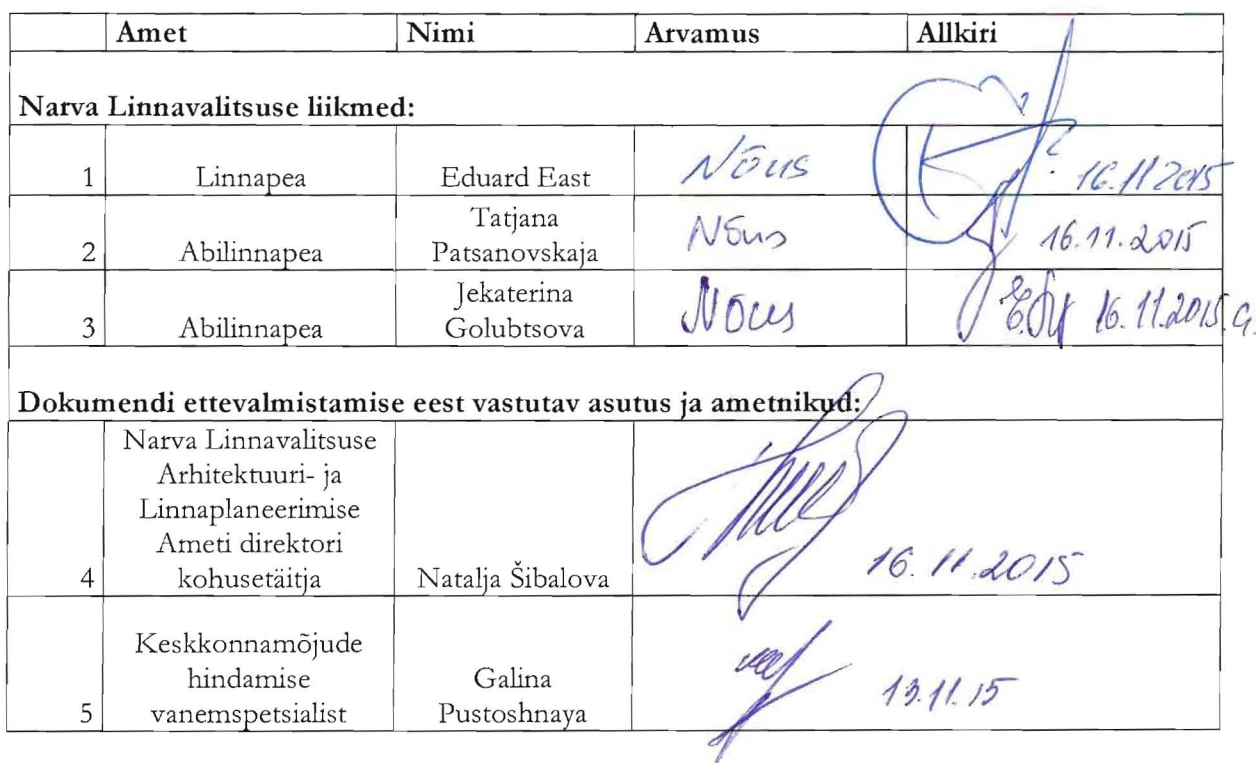 Amet Nimi Arvamus Allkiri
Narva Linnavalitsuse liikmed:
1 Linnapea Eduard East Nõus 16.11 2015
Tatjana
2 Abilinnapea Patsanovskaja Nõus 16.11.2015
Jekaterina
3 Abilinnapea Golubtsova Nõus 16.11.2015.a.
Dokumendi ettevalmistamise eest vastutav asutus ja ametnikud:
Narva Linnavalitsuse
Arhitektuuri- ja
Linnaplaneerimise
Ameti direktori
4 kohusetäitja Natalja Šibalova 16.11.2015
Keskkonnamõjude
hindamise Galina
5 vanemspetsialist Pustoshnaya 13.11.15